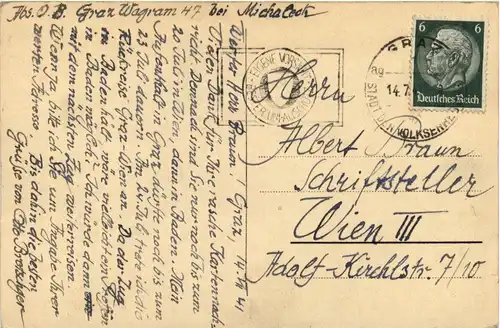 Abs. O. B. Graz Wagram 47 bei Michaleck
Graz, 14. VII 41
Werter Herr Braun!
Vielen Dank für Ihre rasche Kartennach-
richt. Demnach sind Sie nur noch bis zum
20 Juli in Wien, dann in Baden. Mein
Aufenthalt in Graz dürfte noch bis zum
23 Juli dauern. Am 24 Juli trete ich die
Rückreise Graz-Wien an. Da der Zug
in Baden hält, wäre vielleicht ein
in Baden möglich. Ich würde dann
mit dem nächsten Zug weiterreisen.
Wenn ja bitte ich Sie um Angabe Ihrer
werten Adresse. Bis dahin die besten
Grüsse von Otto
Herrn
Albert Braun
Schriftsteller
Wien III
Adolf-Kirchlstr. 7/10
6 6
Deutsches Reich
GRAZ
14.7.
STADT DER VOLKSERHEBUNG